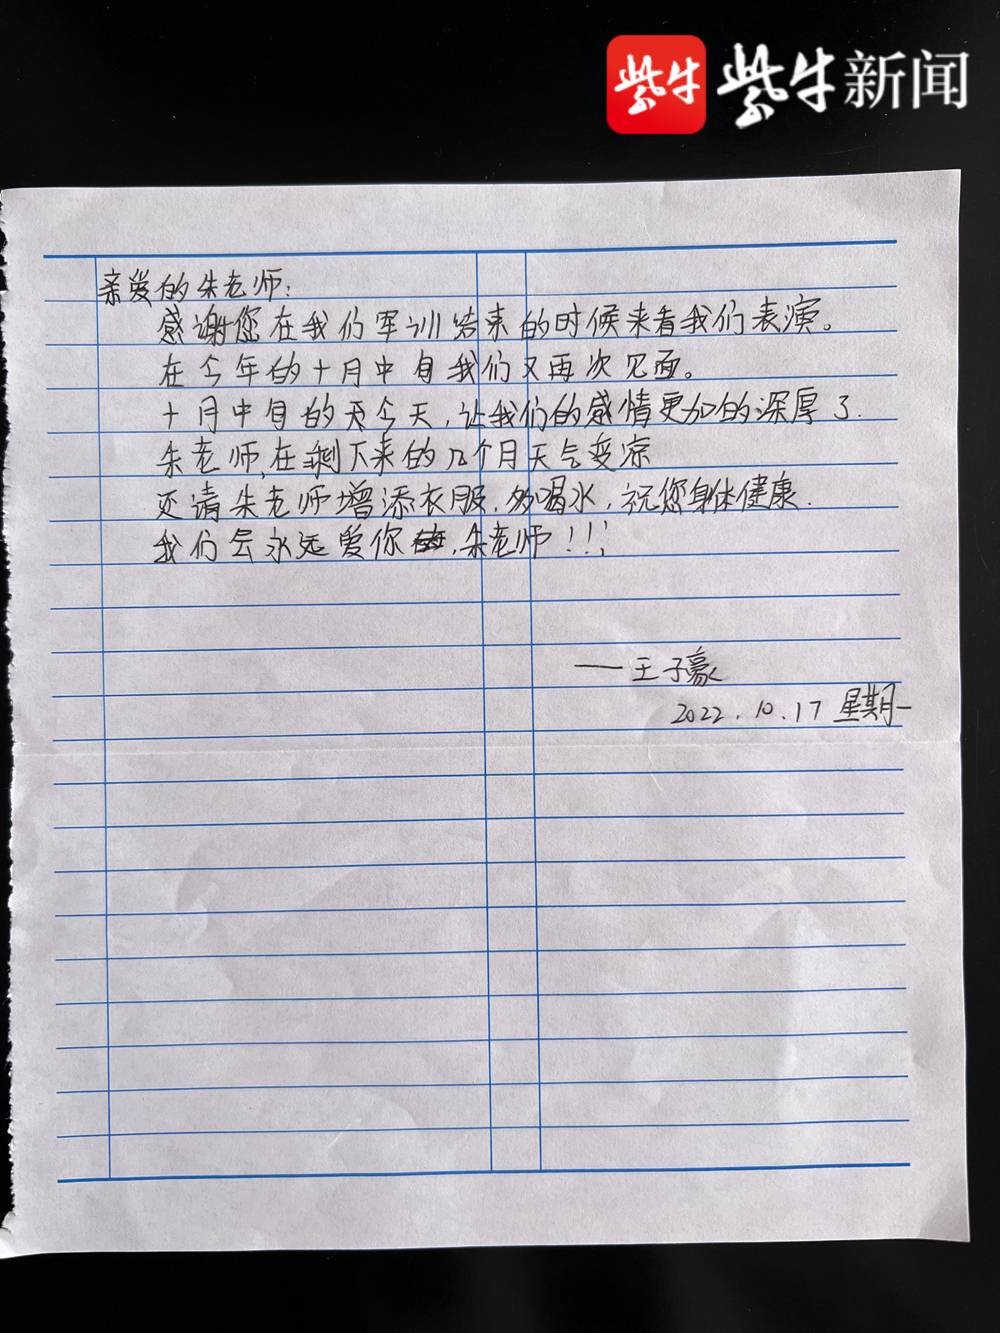 紫牛 紫牛新闻
亲爱的朱老师:
感谢您在我们军训结束的时候来看我们表演。
在今年的十月中旬我们又再次见面。
十月中旬的今天,让我们的感情更加的深厚了.
朱老师,在剩下来的几个月天气变凉
还请朱老师增添衣服,多喝水,祝您身体健康.
我们会永远爱你,朱老师!!!
——王子豪
2022.10.17 星期一